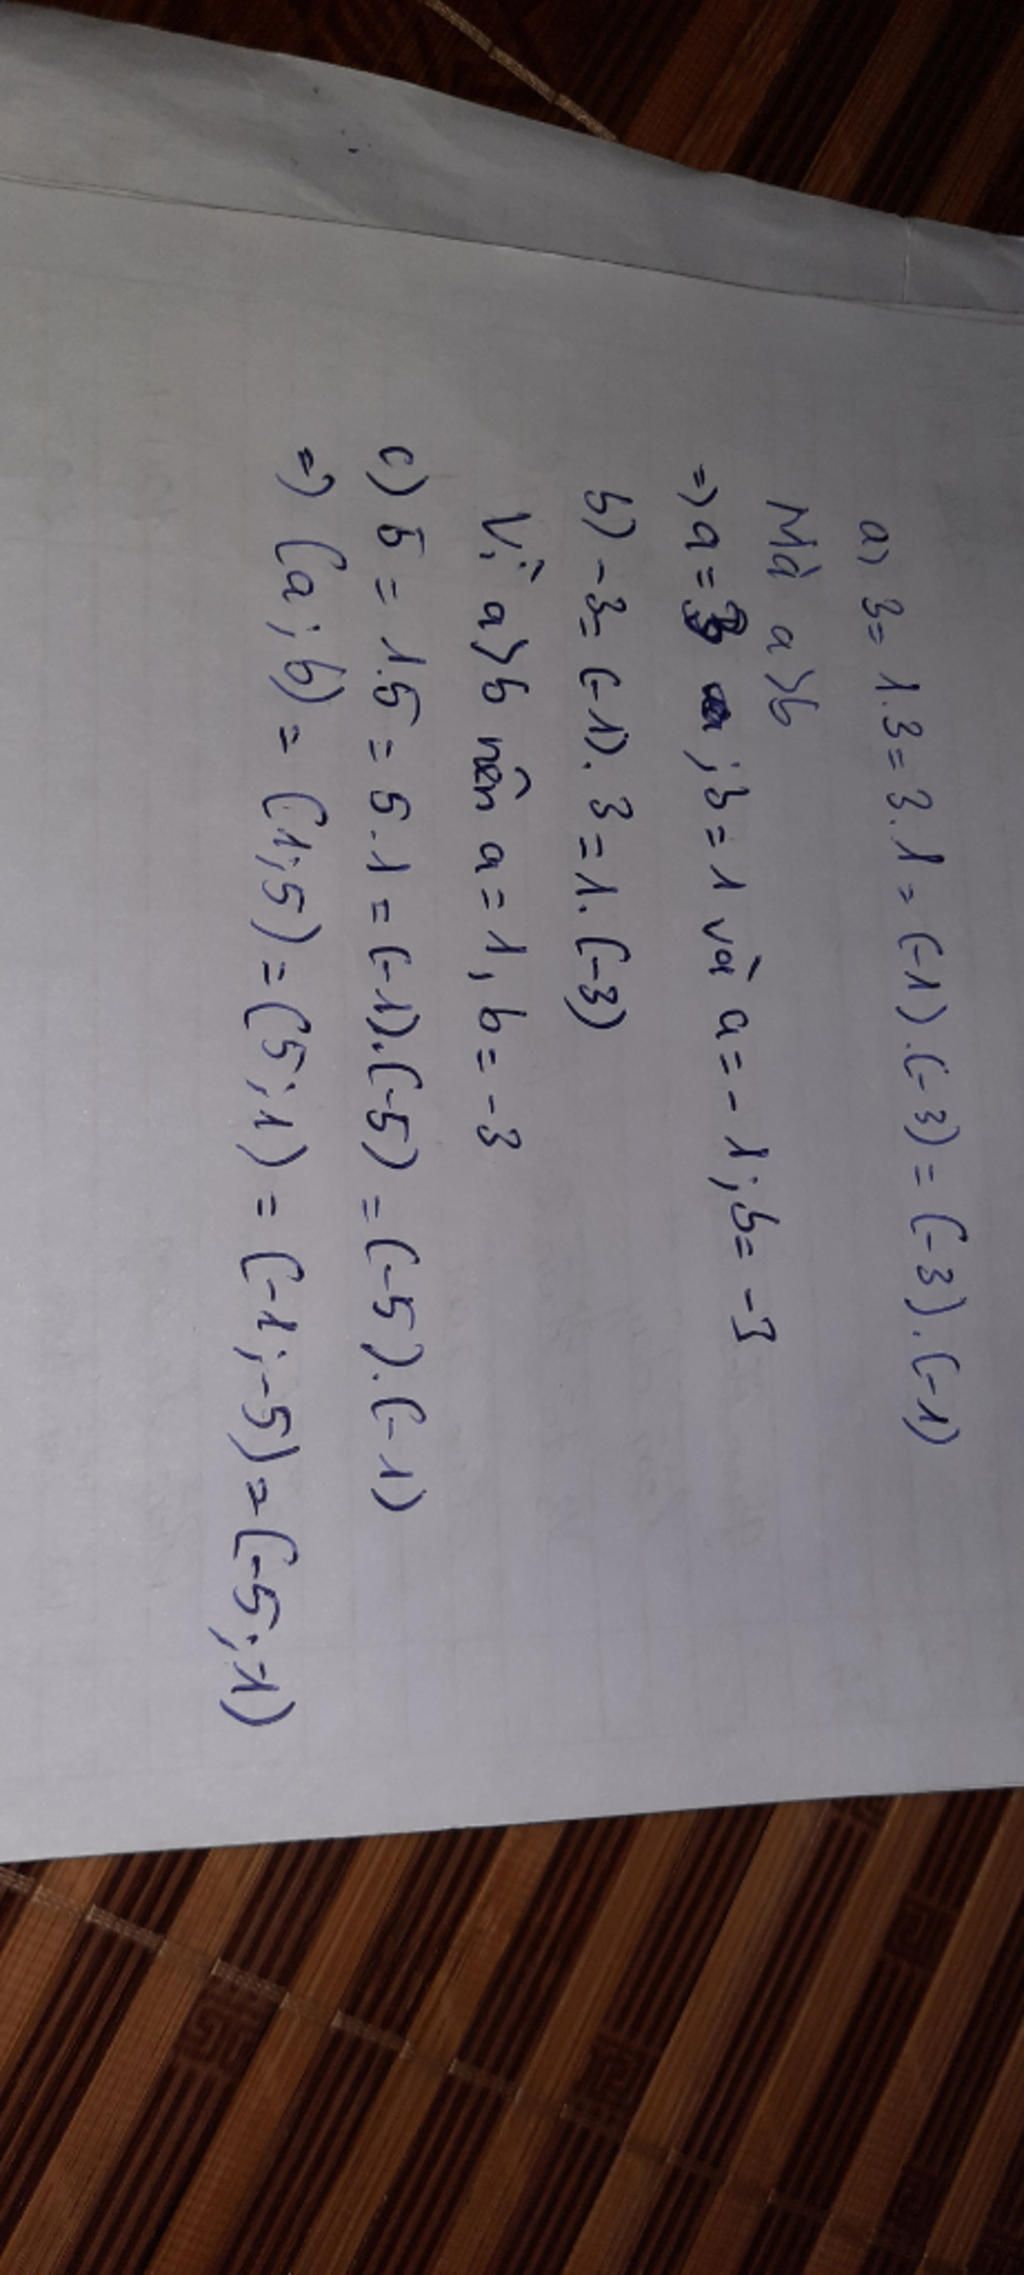 a) 3 = 1.3 = 3.1 = (-1).(-3) = (-3).(-1)
Mà a > b
=> a = 3 ; b = 1 và a = -1 ; b = -3
b) -3 = (-1).3 = 1.(-3)
Vì a > b nên a = 1, b = -3
c) 5 = 1.5 = 5.1 = (-1).(-5) = (-5).(-1)
=> (a ; b) = (1 ; 5) = (5 ; 1) = (-1 ; -5) = (-5 ; -1)